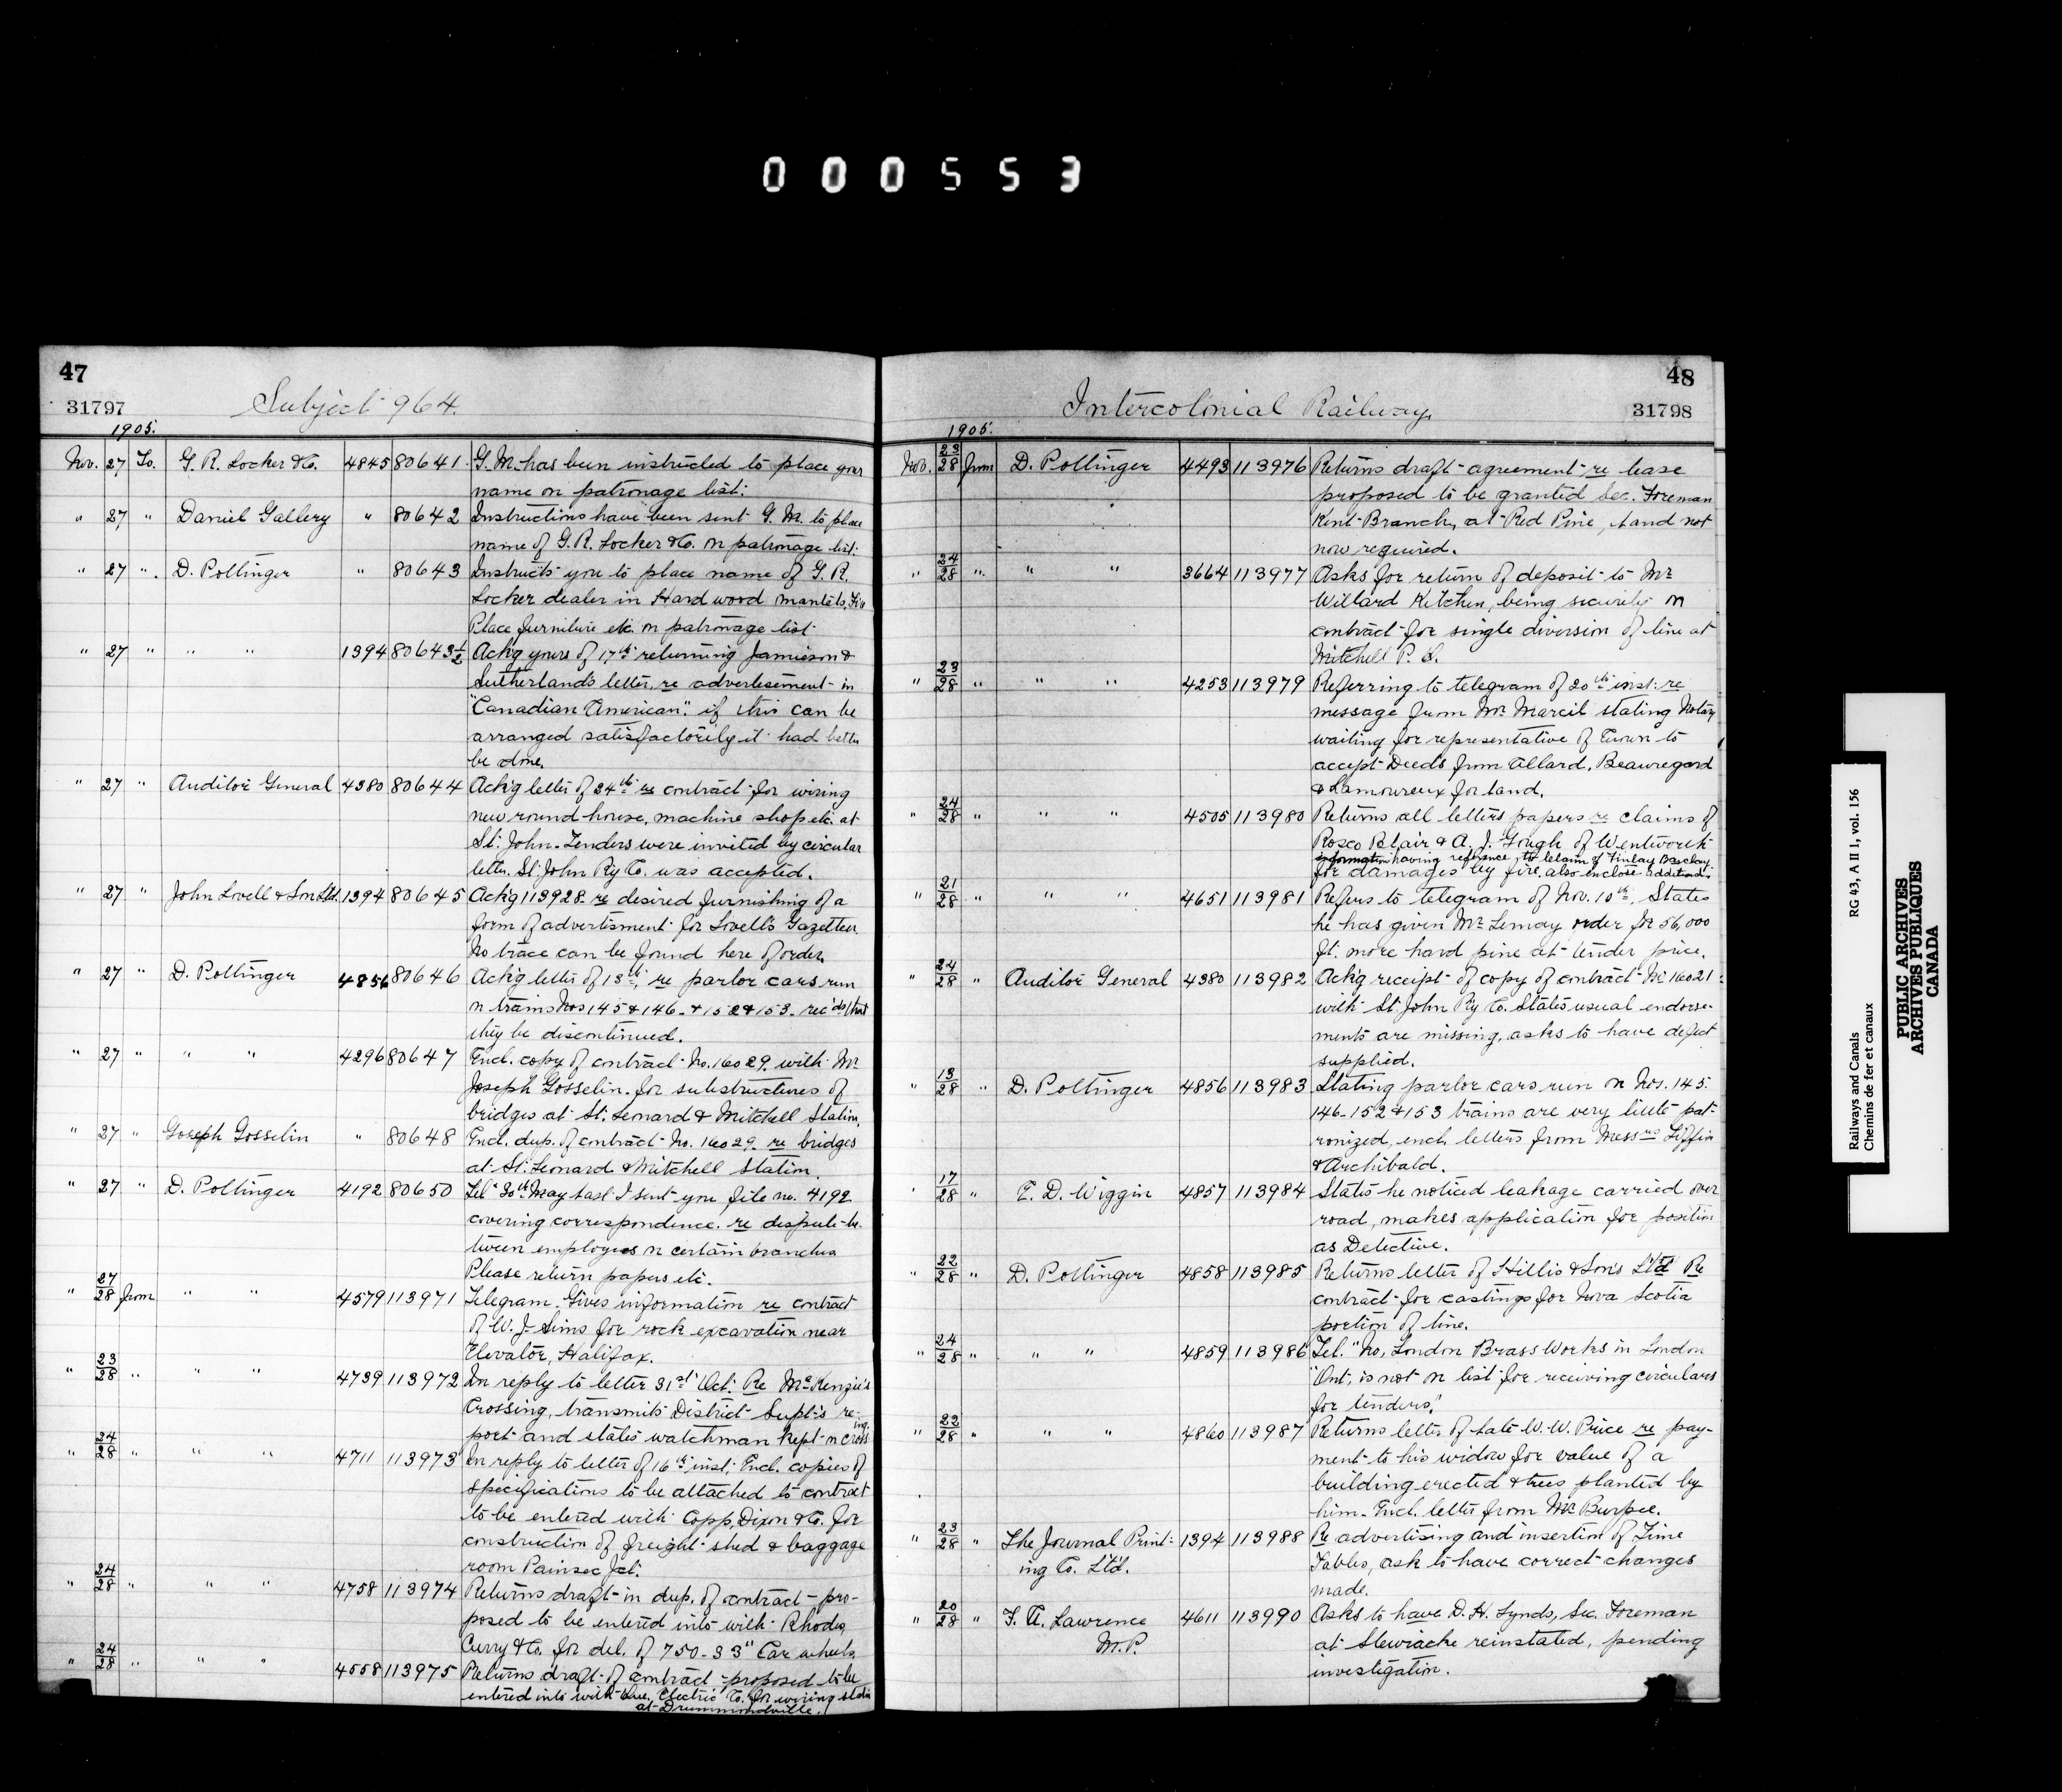 000553
47
31797
Subject 964.
1905.
Nov. 27 To. G. R. Locker & Co. 4845 80641 G. M. has been instructed to place your
name on patronage list.
" 27 " Daniel Gallery " 80642 Instructions have been sent G. M. to place
name of G. R. Locker & Co. on patronage list.
" 27 " D. Pottinger " 80643 Instructs you to place name of G. R.
Locker dealer in Hard wood mantels, Fire
Place furniture etc. on patronage list.
" 27 " " " 1394 80643½ Ackg yours of 17th returning Jamieson &
Sutherland's letter, re advertisement in
"Canadian American". if this can be
arranged satisfactorily it had better
be done.
" 27 " Auditor General 4380 80644 Ackg letter of 24th re contract for wiring
new round house, machine shop etc. at
St. John. Tenders were invited by circular
letter. St. John Ry Co. was accepted.
" 27 " John Lovell & Son Ltd. 1394 80645 Ackg 113928 re desired furnishing of a
form of advertisment for Lovell's Gazetteer.
No trace can be found here of order.
" 27 " D. Pottinger 4856 80646 Ackg letter of 13th, re parlor cars run
on trains Nos 145 & 146 & 152 & 153 rec'ds that
they be discontinued.
" 27 " " " 4296 80647 Encl. copy of contract No. 16029 with Mr
Joseph Gosselin for substructures of
bridges at St. Leonard & Mitchell Station.
" 27 " Joseph Gosselin " 80648 Encl. dup. of contract No. 16029 re bridges
at St. Leonard & Mitchell Station.
" 27 " D. Pottinger 4192 80650 Tel. "30th May last I sent you file no. 4192
covering correspondence re dispute be-
tween employees on certain branches
Please return papers etc.
" 27/28 from " " 4579 113971 Telegram. Gives information re contract
of W. J. Sims for rock excavation near
Elevator, Halifax.
" 23/28 " " " 4739 113972 In reply to letter 31st Oct. Re McKenzie's
Crossing, transmits District Supt's re-
port and states watchman kept on crossing.
" 24/28 " " " 4711 113973 In reply to letter of 16th inst. Encl. copies of
specifications to be attached to contract
to be entered with Copp, Dixon & Co. for
construction of freight shed & baggage
room Painsec Jct.
" 24/28 " " " 4758 113974 Returns draft in dup. of contract pro-
posed to be entered into with Rhodes,
Curry & Co. for del. of 750-33" Car wheels.
" 24/28 " " " 4558 113975 Returns draft of contract proposed to be
entered into with Electric Co. for wiring
at Drummondville.
48
31798
Intercolonial Railway.
1905.
Nov. 23/28 from D. Pottinger 4493 113976 Returns draft agreement re lease
proposed to be granted Sec. Foreman
Kent Branch, at Red Pine, land not
now required.
" 24/28 " " " 3664 113977 Asks for return of deposit to Mr
Willard Kitchen, being security on
contract for single diversion of line at
Mitchell P. Q.
" 23/28 " " " 4253 113979 Referring to telegram of 20th inst. re
message from Mr Marcil stating Notary
waiting for representative of Crown to
accept Deeds from Allard, Beauregard
& Lamoureux for land.
" 24/28 " " " 4505 113980 Returns all letters papers re claims of
Rosco Blair & A. J. Gough of Wentworth
information having reference to claim of Finlay Barclay
for damages by fire, also enclose additional
" 21/28 " " " 4651 113981 Refers to telegram of Nov. 10th, States
he has given Mr Lemay order for 56,000
ft. more hard pine at tender price.
" 24/28 " Auditor General 4380 113982 Ackg receipt of copy of contract No 16021
with St John Ry Co. States usual endorse-
ments are missing, asks to have defect
supplied.
" 13/28 " D. Pottinger 4856 113983 Stating parlor cars run on Nos. 145
146-152 & 153 trains are very little pat-
ronized, encl. letters from Messrs Tiffin
& Archibald.
" 17/28 " E. D. Wiggin 4857 113984 States he noticed leakage carried over
road, makes application for position
as Detective.
" 22/28 " D. Pottinger 4858 113985 Returns letter of Hillis & Sons Ltd Re
contract for castings for Nova Scotia
portion of line.
" 24/28 " " " 4859 113986 Tel. "No, London Brass Works in London
"Ont, is not on list for receiving circulars
for tenders."
" 22/28 " " " 4860 113987 Returns letter of late W. W. Price re pay-
ment to his widow for value of a
building erected & trees planted by
him. Encl. letter from Mr Burpee.
" 23/28 " The Journal Print- 1394 113988 Re advertising and insertion of Time
ing Co. Ltd. Tables, ask to have correct changes
made.
" 20/28 " F. A. Lawrence 4611 113990 Asks to have D. H. Lynds, Sec. Foreman
M.P. at Stewiacke reinstated, pending
investigation.
Railways and Canals RG 43, A II 1, vol. 156
Chemins de fer et canaux
PUBLIC ARCHIVES
ARCHIVES PUBLIQUES
CANADA